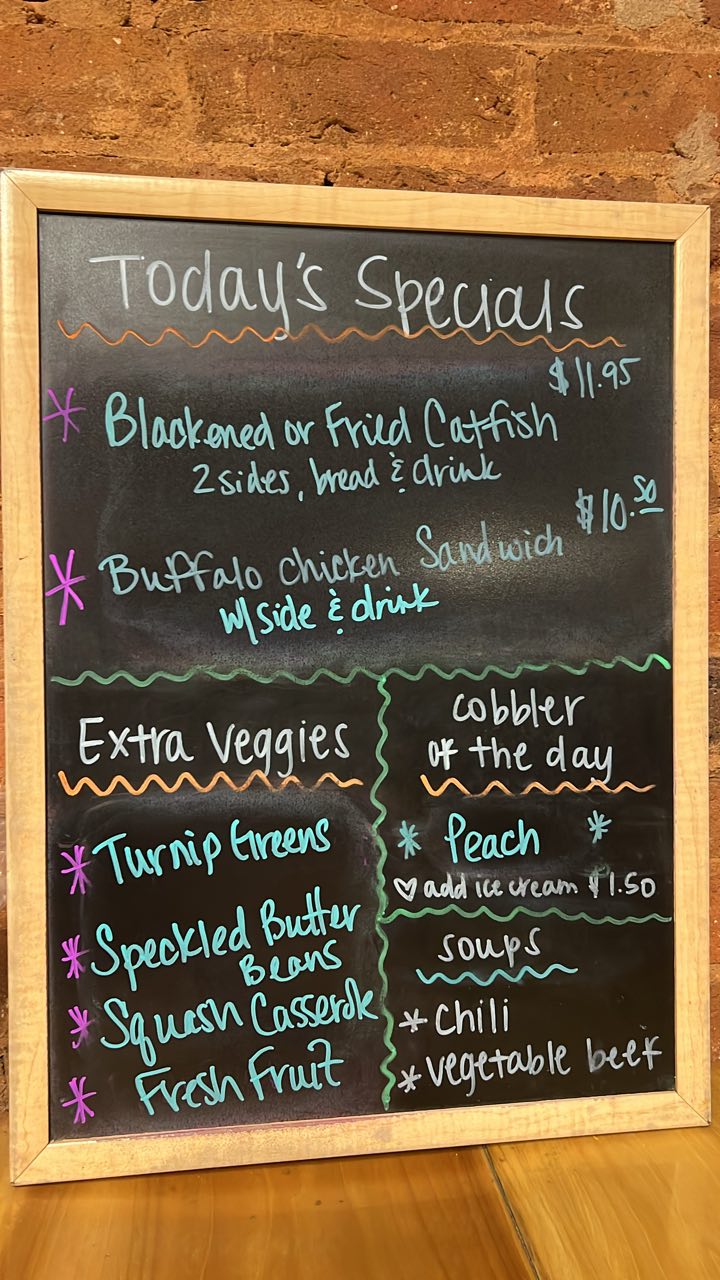 Today's Specials
$11.95
* Blackened or Fried Catfish
2 sides, bread & drink
$10.50
* Buffalo chicken Sandwich
w/side & drink
Extra Veggies
* Turnip Greens
* Speckled Butter
Beans
* Squash Casserole
* Fresh Fruit
cobbler
of the day
* Peach *
♡ add ice cream $1.50
soups
* chili
* vegetable beef